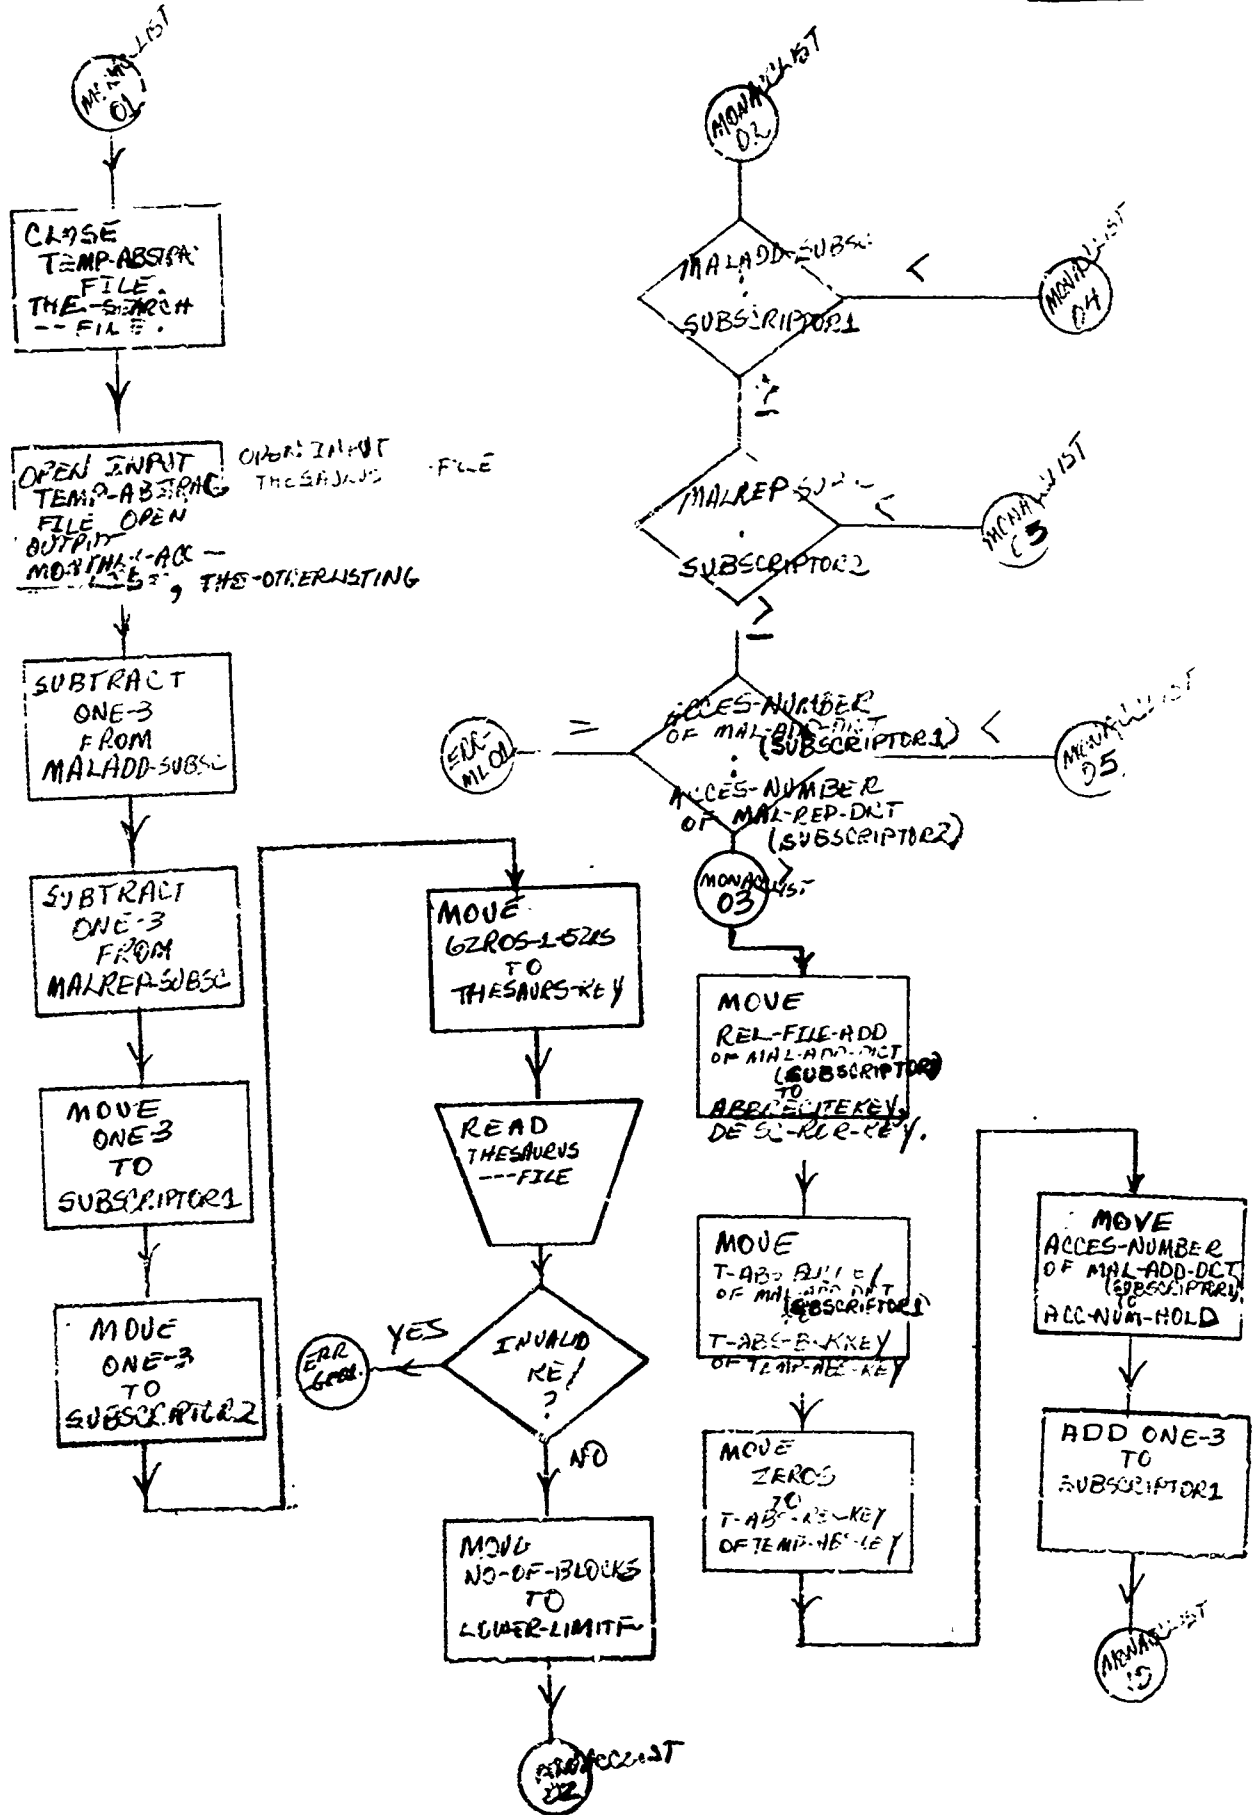 01
CLOSE
TEMP-ABSTRA
FILE.
THE-SEARCH
--FILE.
OPEN INPUT
TEMP-ABSTRAC
FILE OPEN
OUTPUT
, THE-OTHERLISTING
OPEN INPUT
THESAURUS -FILE
SUBTRACT
ONE-3
FROM
MALADD-SUBSC
SUBTRACT
ONE-3
FROM
MALREP-SUBSC
MOVE
ONE-3
TO
SUBSCRIPTOR1
MOVE
ONE-3
TO
SUBSCRIPTOR2
MOVE
TO
THESAURS-KEY
READ
THESAURUS
---FILE
INVALID
KEY
?
YES
ERR
NO
MOVE
NO-OF-BLOCKS
TO
LOWER-LIMIT
02
MONACCLIST
02
MALADD-SUBSC
:
SUBSCRIPTOR1
<
04
≥
MALREP-SUBSC
:
SUBSCRIPTOR2
<
≥
ACCES-NUMBER
OF MAL-ADD-DCT
(SUBSCRIPTOR1)
:
ACCES-NUMBER
OF MAL-REP-DCT
(SUBSCRIPTOR2)
=
ERR-
ML01
<
05
>
MONACCLIST
03
MOVE
REL-FILE-ADD
OF MAL-ADD-DICT
(SUBSCRIPTOR)
TO
DESC-RCR-KEY.
MOVE
OF MAL-ADD-DCT
(SUBSCRIPTOR1)
OF TEMP-ABS-KEY
MOVE
ZEROS
TO
OF TEMP-ABS-KEY
MOVE
ACCES-NUMBER
OF MAL-ADD-DCT
TO
ACC-NUM-HOLD
ADD ONE-3
TO
SUBSCRIPTOR1
MONACCLIST